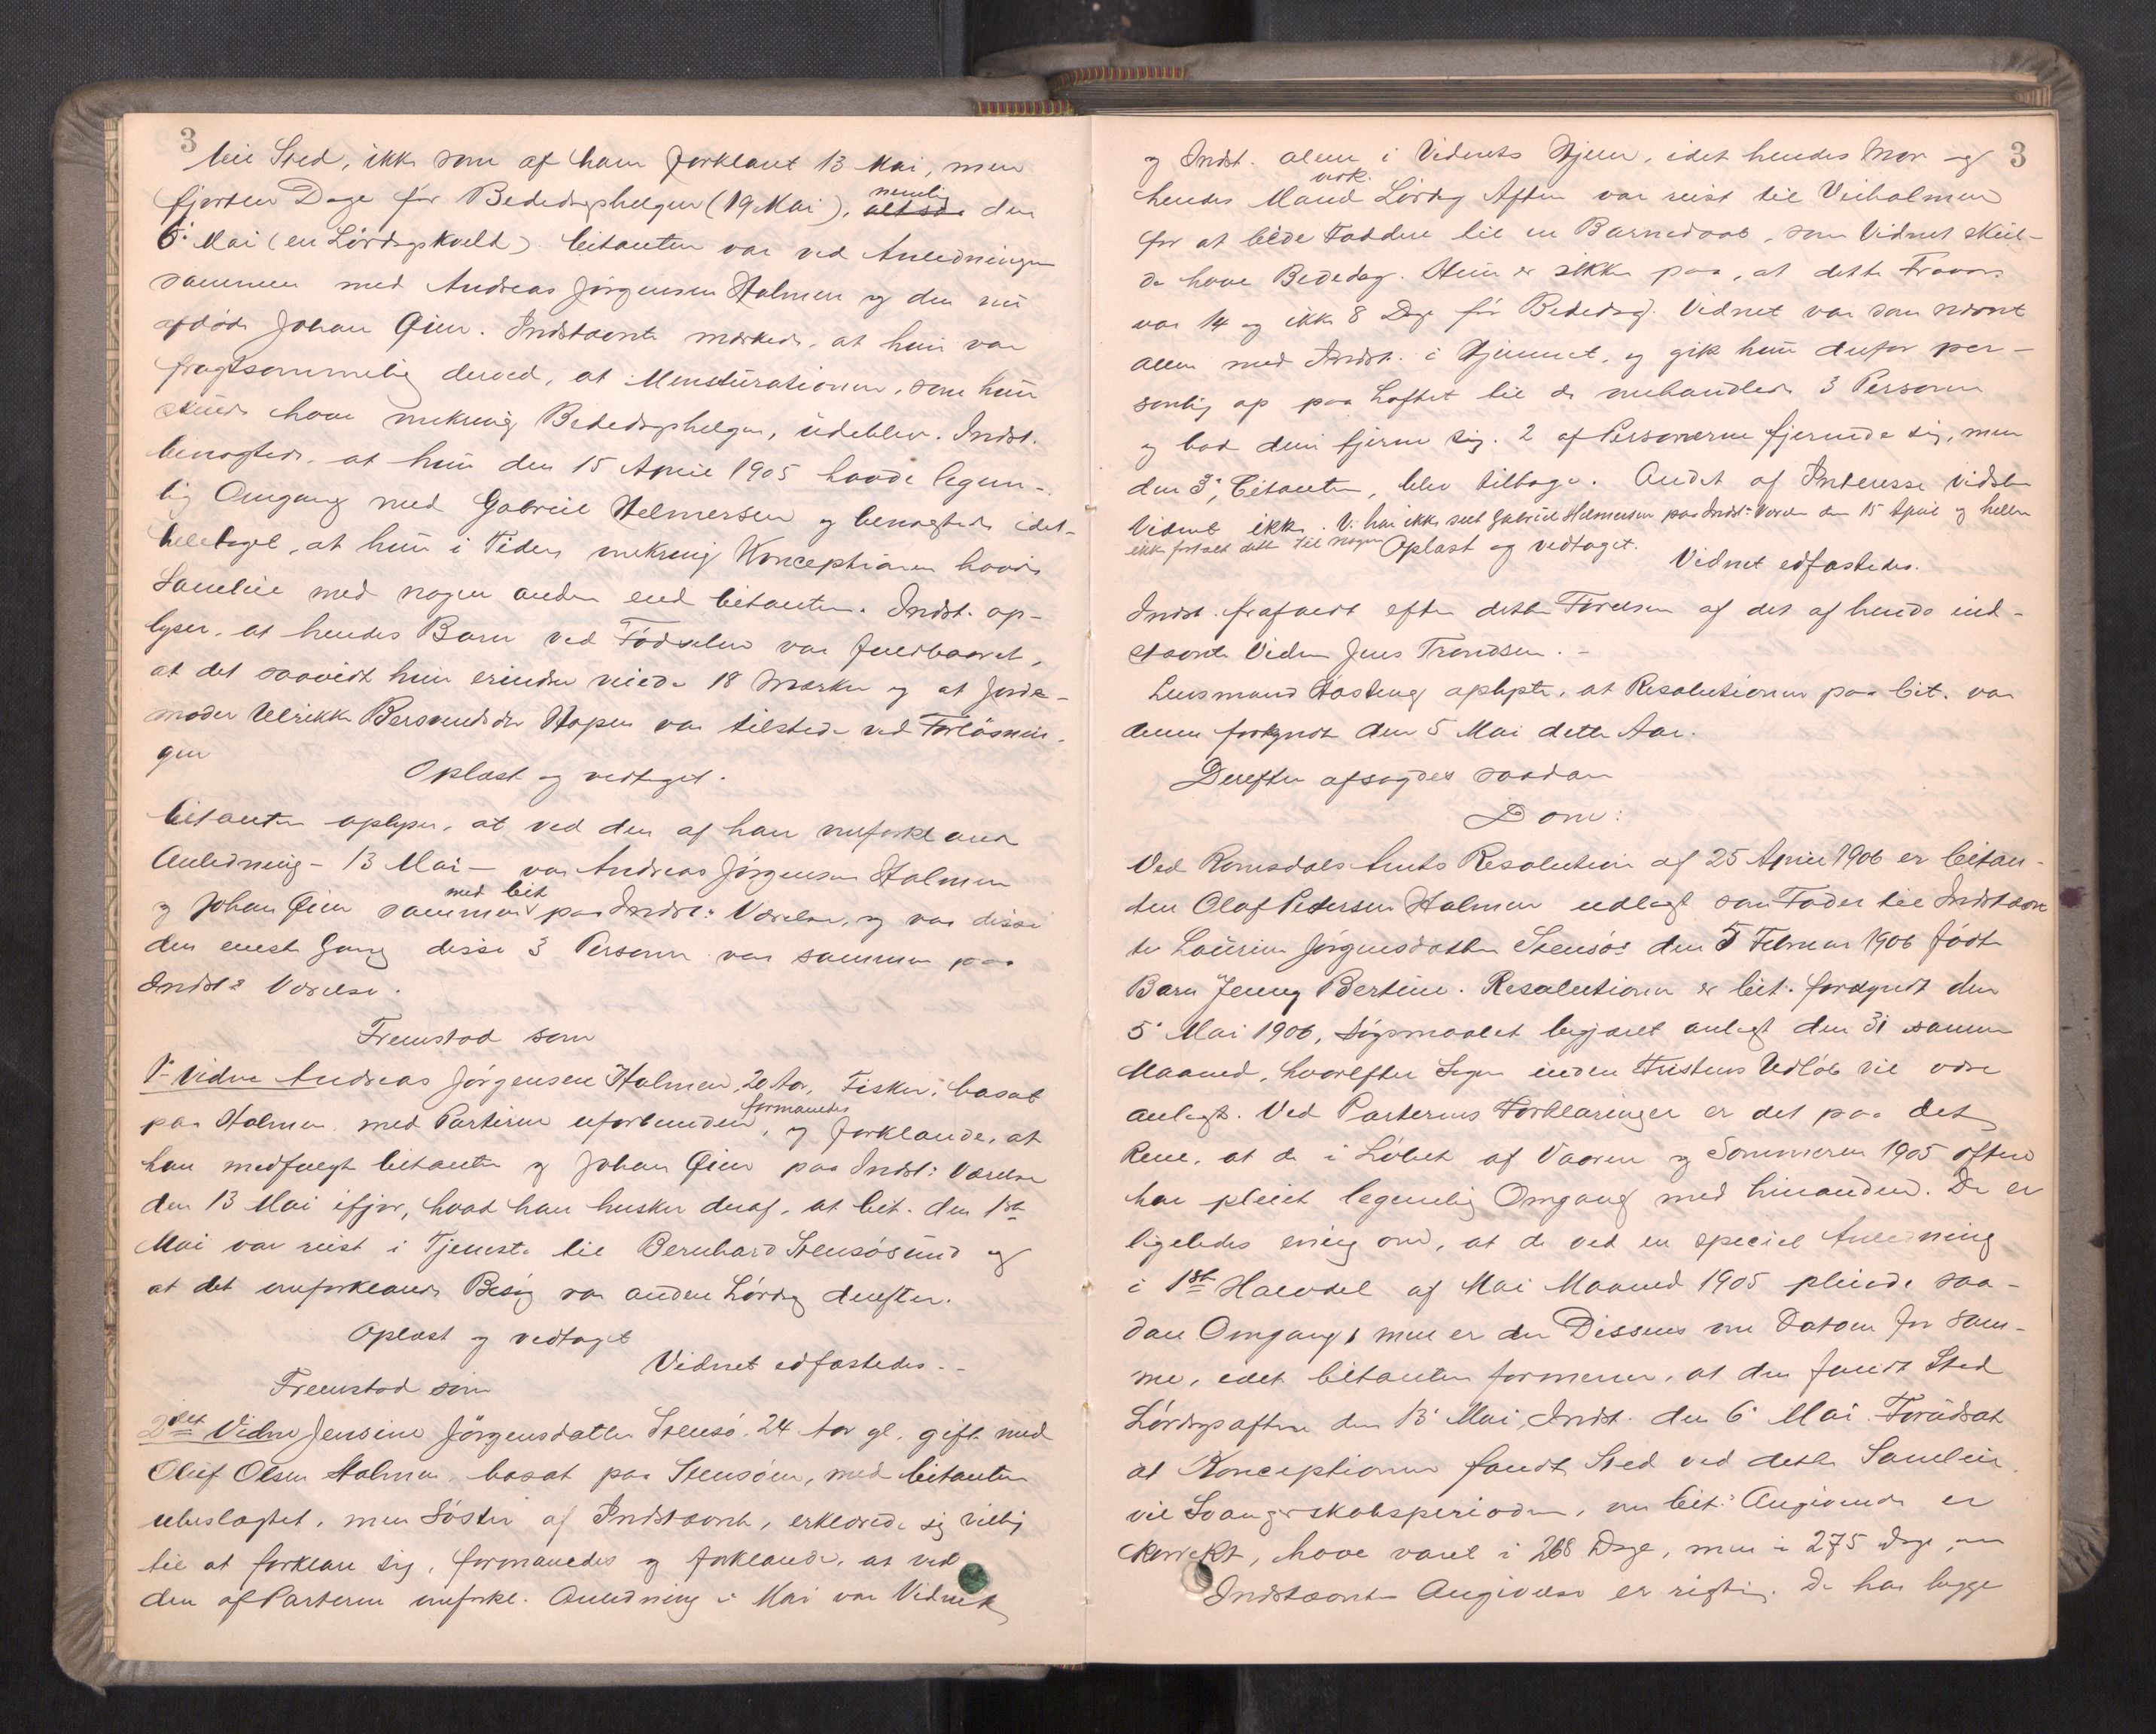 3
leie Sted, ikke som af ham forklaret 13 Mai, men
fjorten Dage før Bededagshelgen (19 Mai), altsaa nemlig den
6' Mai (en Lørdagskveld). Citanten var ved Anledningen
sammen med Andreas Jørgensen Holmen og den nu
afdøde Johan Øien. Indstævnte mærkede, at hun var
frugtsommelig derved, at Menstürationen, som hun
skulde have omkring Bededagshelgen, udeblev. Indst.
benegtede, at hun den 15 April 1905 havde legem-
lig Omgang med Gabriel Helmersen og benegtede idet-
heletaget, at hun i Tiden omkring Konceptionen havde
Samleie med nogen anden end Citanten. Indst. op-
lyser, at hendes Barn ved Fødselen var fuldbaaret,
at det saavidt hun erindrer veiede 18 Marker og at Jorde-
moder Ulrikke Hopen var tilstede ved Forløsnin-
gen
Oplæst og vedtaget.
Citanten oplyser, at ved den af ham omforklarede
Anledning - 13 Mai - var Andreas Jørgensen Holmen
og Johan Øien sammen med Cit paa Indst.s Værelse, og var disse
den eneste Gang disse 3 Personer var sammen paa
Indst.s Værelse.
Fremstod som
1' Vidne Andreas Jørgensen Holmen, 20 Aar, Fisker, bosat
paa Holmen, med Parterne uforbunden, formanedes og forklarede, at
han medfulgte Citanten og Johan Øien paa Indst.s Værelse
den 13 Mai ifjor, hvad han husker deraf, at Cit. den 1ste
Mai var reist i Tjeneste til Bernhard Stensøsund og
at det omforklarede Besøg var anden Lørdag derefter.
Oplæst og vedtaget
Vidnet edfæstedes. -
Fremstod som
2det Vidne Jensine Jörgensdatter Stensø, 24 Aar gl. gift med
Oluf Olsen Holmen, bosat paa Stensøen, med Citanten
ubeslægtet, men Søster af Indstævnte, erklærede sig villig
til at forklare sig, formanedes og forklarede, at ved
den af Parterne omforkl. Anledning i Mai var Vidnet
3
og Indst. alene i Vidnets Hjem, idet hendes Mor og
hendes Mand Lørdag Aften var reist til Veiholmen
for at bede Faddere til en Barnedaab, som Vidnet skul-
de have Bededag. Hun er sikker paa, at dette Travær
var 14 og ikke 8 Dage før Bededag. Vidnet var som nævnt
alene med Indst. i Hjemmet, og gik hun derfor per-
sonlig op paa Loftet til de omhandlede 3 Personer
og bad dem fjerne sig. 2 af Personerne fjernede sig, men
den 3', Citanten, blev tilbage. Andet af Interesse vidste
Vidnet ikke. V. har ikke seet Gabriel Helmersen paa Indst.s Værelse den 15 April og heller
ikke fortalt dette til nogen Oplæst og vedtaget.
Vidnet edfæstedes.
Indst. frafaldt efter dette Førelsen af det af hende ind-
stævnte Vidne Jens Trondsen. -
Lensmand oplyste, at Resolutionen paa Cit. var
denne forkyndt den 5 Mai dette Aar.
Derefter afsagdes saadan
Dom:
Ved Romsdals Amts Resolution af 25 April 1906 er Citan-
ten Olaf Pedersen Holmen udlagt som Fader til Indstævn-
te Laurine Jørgensdatter Stensøs den 5 Februar 1906 fødte
Barn Jenny Bertine. Resolutionen er Cit. forkyndt den
5' Mai 1906, Søgsmaalet begjæret anlagt den 31 samme
Maaned, hvorefter Sagen inden Fristens Udløb vil være
anlagt. Ved Parternes Forklaringer er det paa det
Rene, at de i Løbet af Vaaren og Sommeren 1905 oftere
har pleiet legemlig Omgang med hinanden. De er
ligeledes enig om, at de ved en speciel Anledning
i 1ste Halvdel af Mai Maaned 1905 pleiede saa-
dan Omgang, men er der Dissens om Datoen for Sam-
me, idet Citanten formener, at den fandt Sted
Lørdagsaften den 13' Mai, Indst. den 6' Mai. Forudsat
at Konceptionen fandt Sted ved dette Samleie,
vil Svangerskabsperioden, om Cit.s Angivende er
Korrekt, have varet i 268 Dage, men i 275 Dage, om
Indstævntes Angivelse er rigtig. De har begge